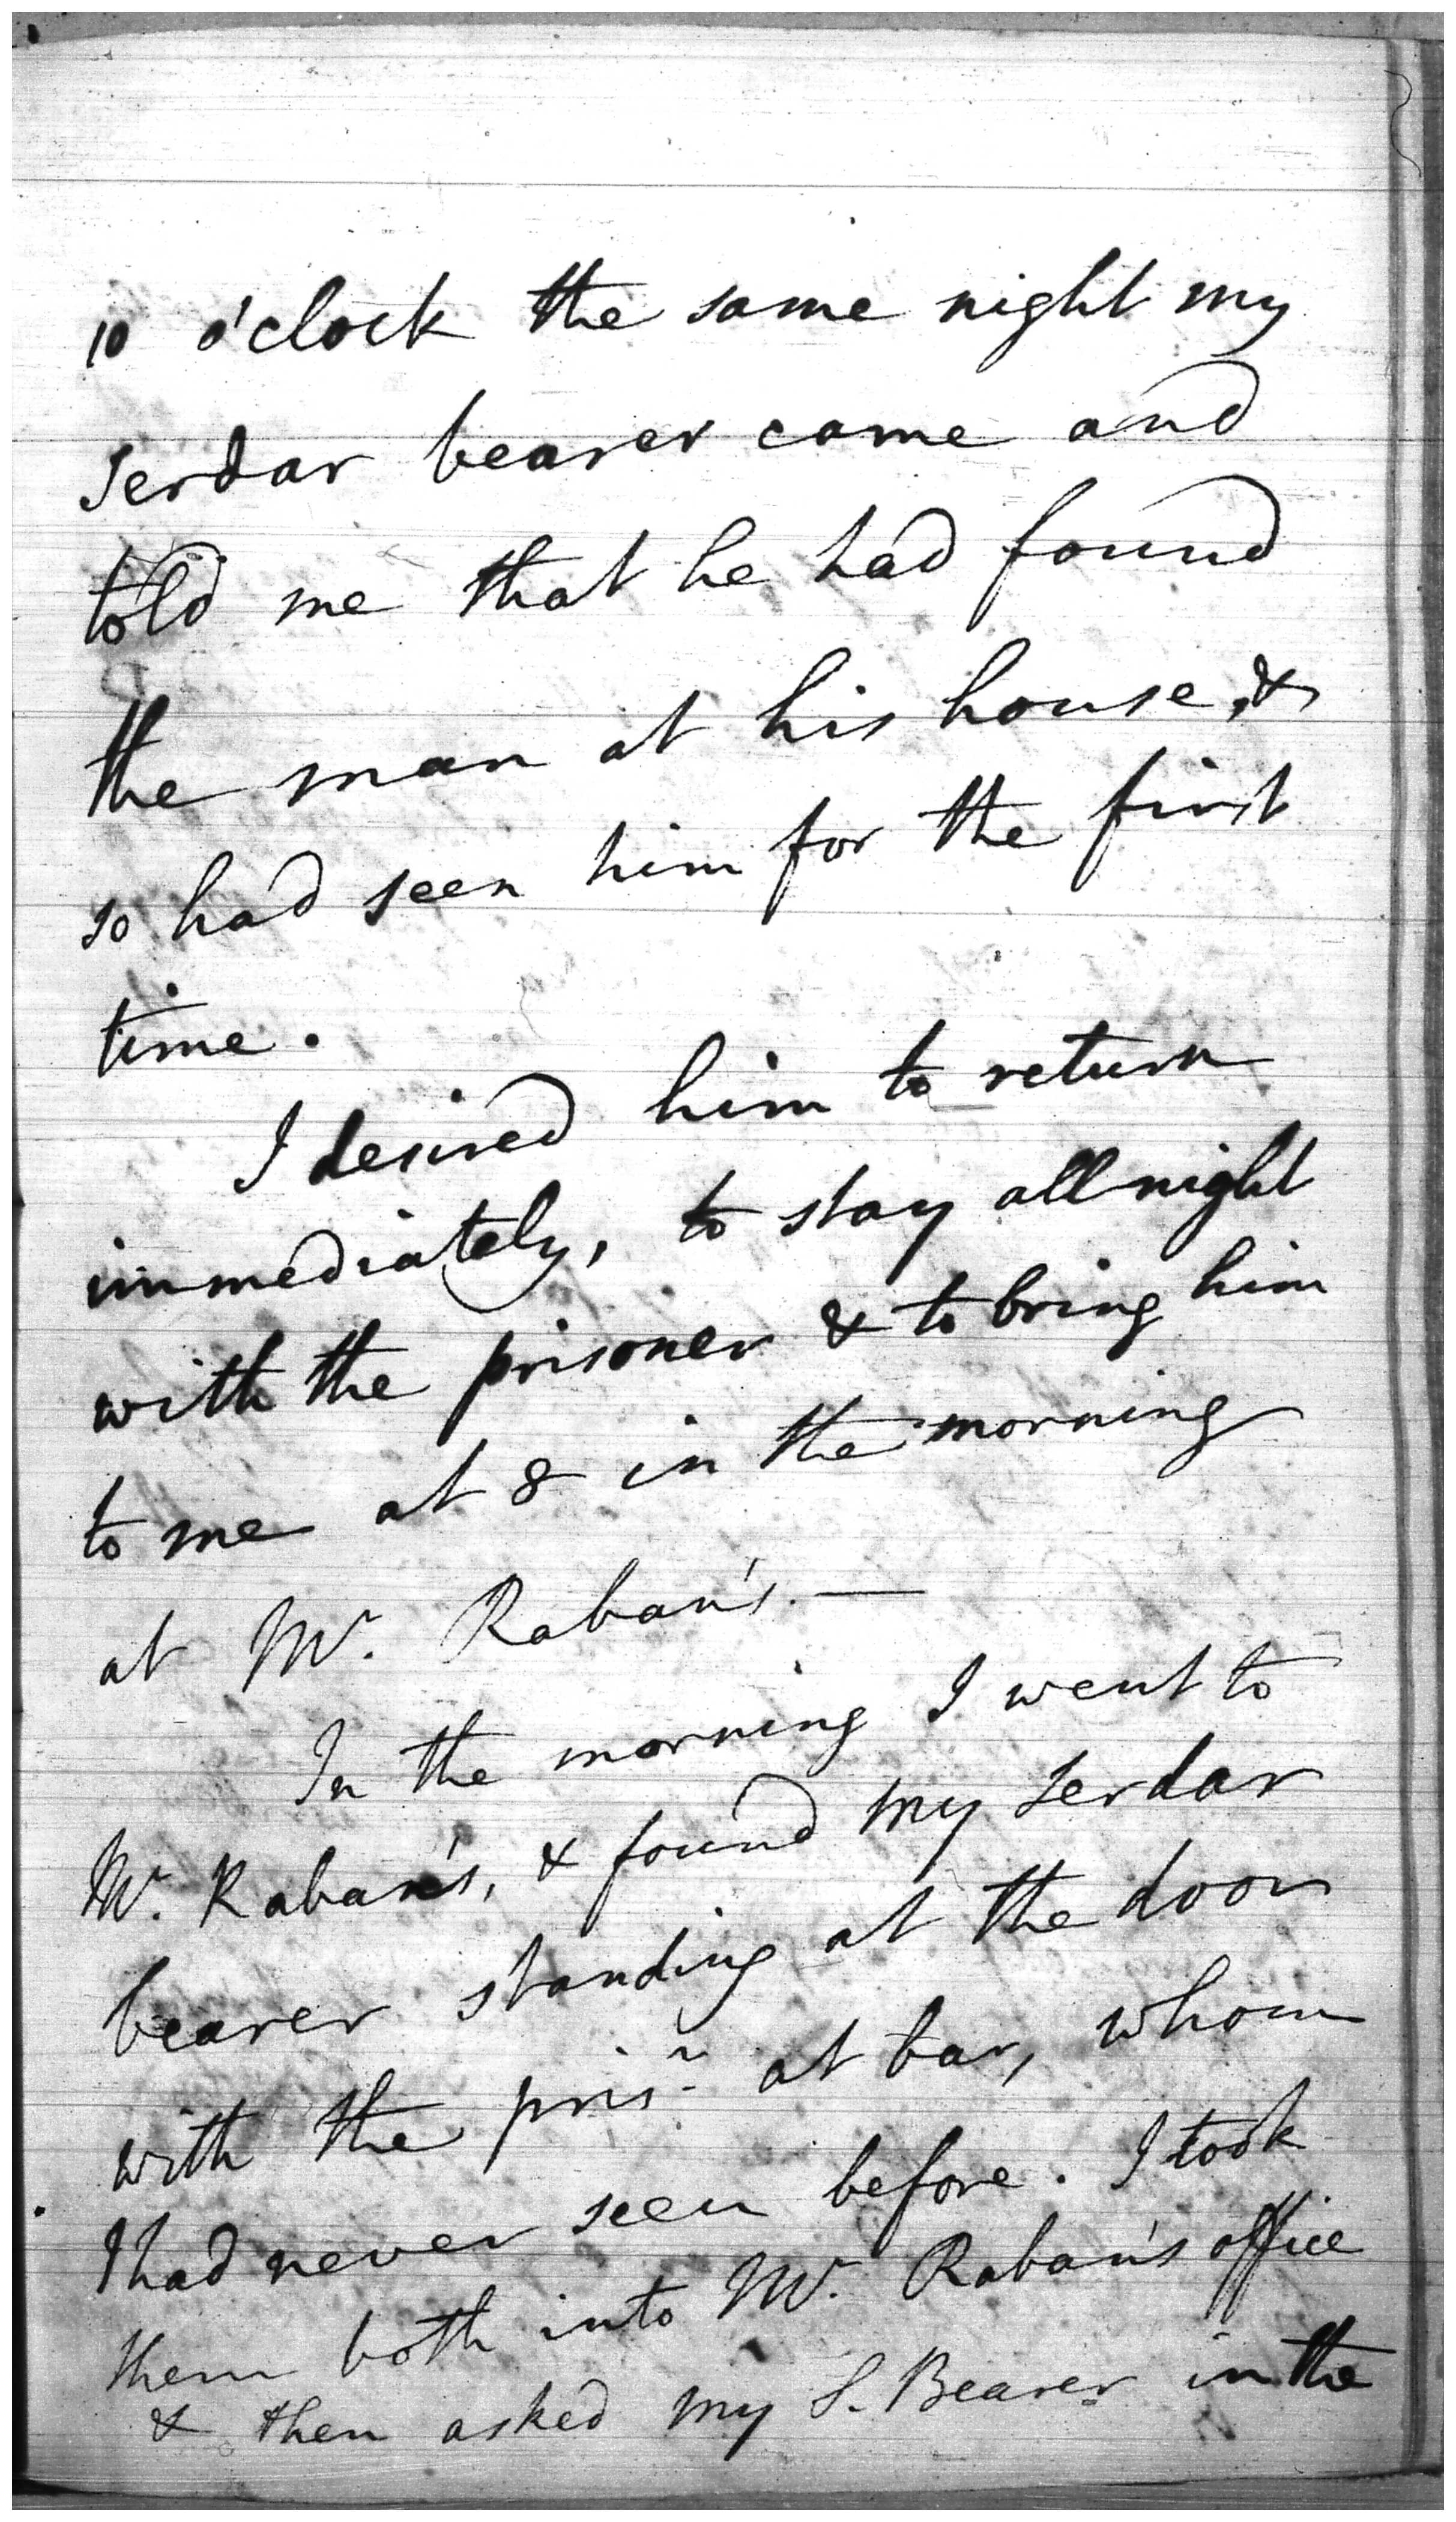 10 o'clock the same night my
serdar bearer came and
told me that he had found
the man at his house, &
so had seen him for the first
time.
I desired him to return
immediately, to stay all night
with the prisoner & to bring him
to me at 8 in the morning
at Mr. Raban's. —
In the morning I went to
Mr. Raban's, & found my serdar
bearer standing at the door
with the prisr at bar, whom
I had never seen before. I took
them both into Mr. Raban's office
& then asked my S. Bearer in the